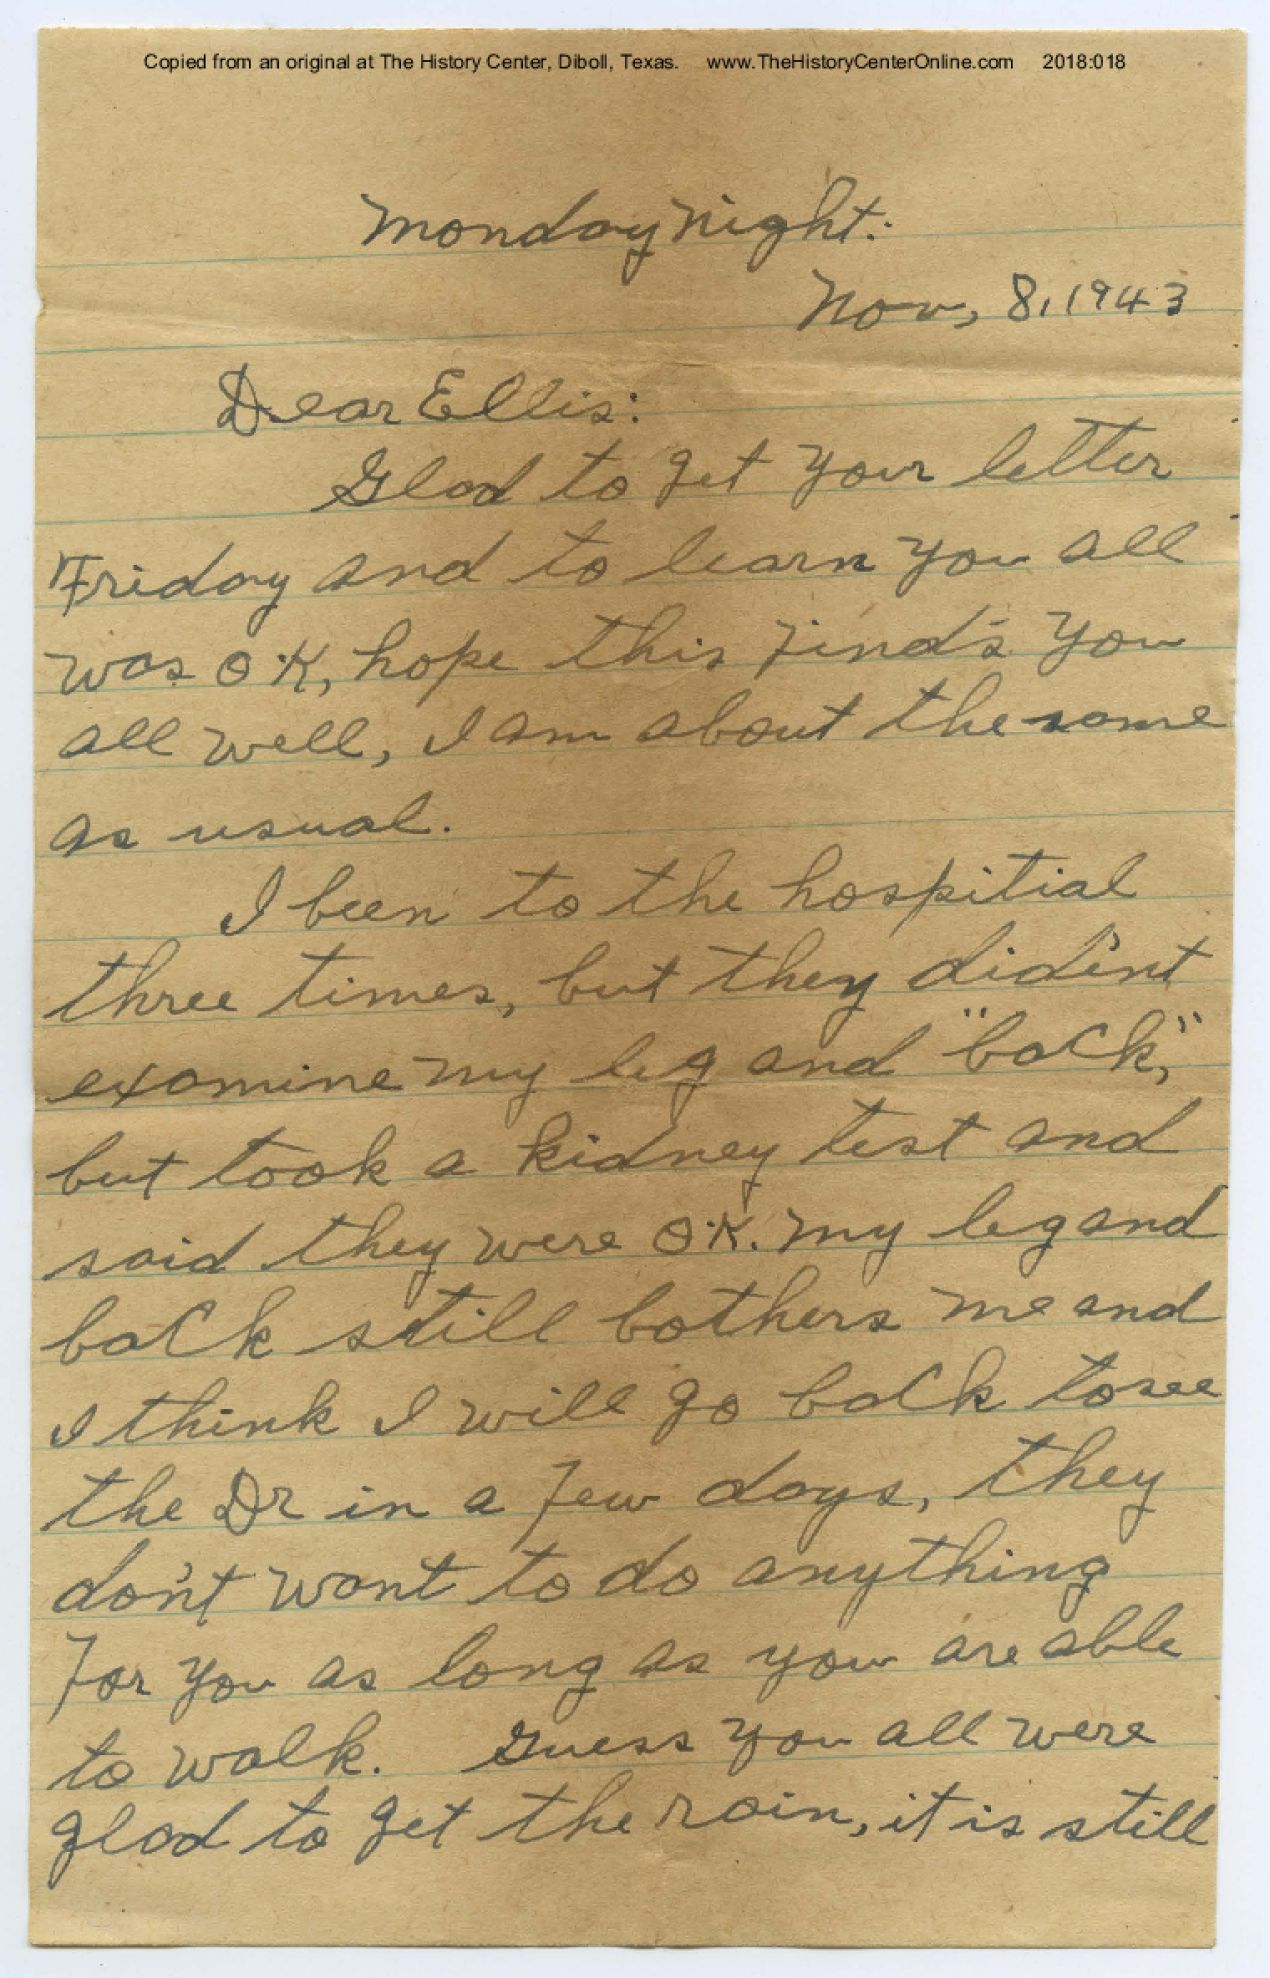 Copied from an original at The History Center, Diboll, Texas. www.TheHistoryCenterOnline.com 2018:018
Monday Night:
Nov, 8, 1943
Dear Ellis:
Glad to get your letter
Friday and to learn you all
was O.K, hope this find's you
all well, I am about the same
as usual.
I been to the hospitial
three times, but they did'ent
examine my leg and "back",
but took a kidney test and
said they were O.K. my leg and
back still bothers me and
I think I will go back to see
the Dr in a few days, they
don't want to do anything
For you as long as you are able
to walk. Guess you all were
glad to get the rain, it is still